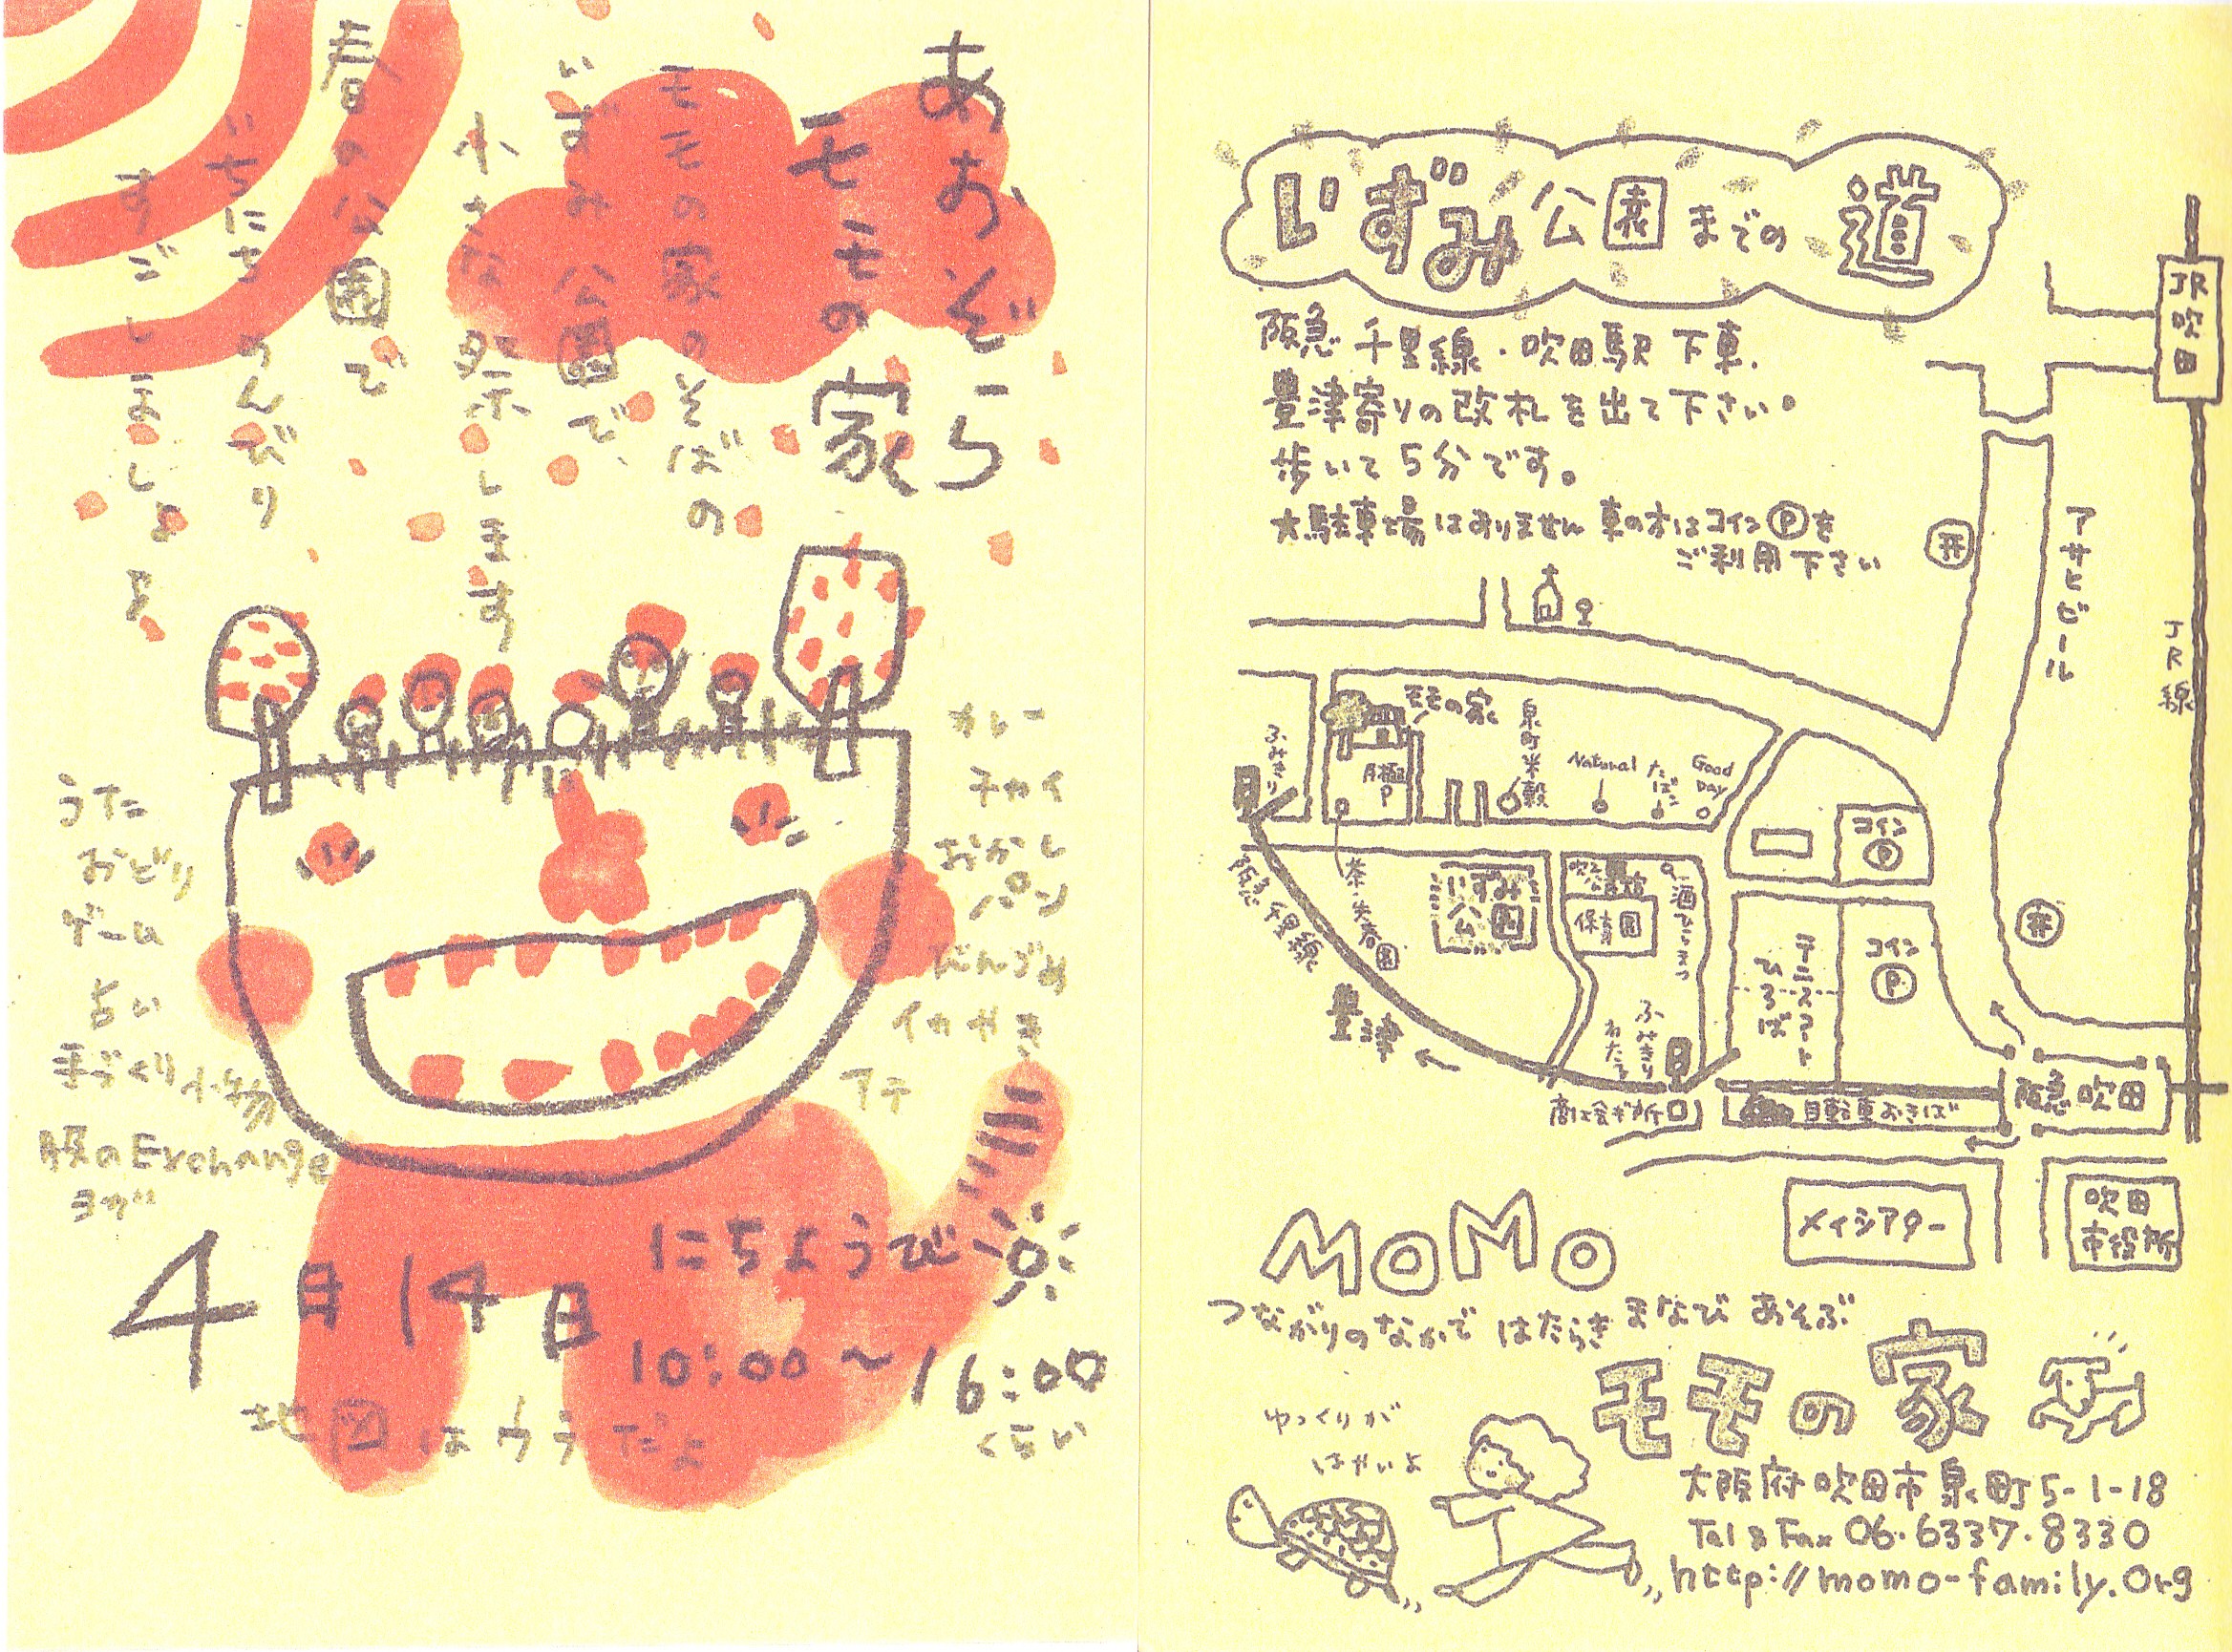 あおぞら
モモの家
モモの家のそばの
いずみ公園で
小さな祭します
春の公園で
いちにち のんびり
すごしましょ
カレー
チヂミ
おかし
パン
びんづめ
イカやき
アテ
うた
おどり
ゲーム
占い
手づくり小物
服のExchange
ヨガ
4月14日
にちようび
10:00～16:00
くらい
地図はうらだよ
いずみ公園までの道
阪急 千里線・吹田駅 下車.
豊津寄りの改札を出て下さい。
歩いて5分です。
★駐車場はありません 車の方はコインⓅを
ご利用下さい
JR吹田
アサヒビール
JR線
モモの家
泉町米穀
Natural
たばこ
Good Day
ふみきり
月極P
コインⓅ
阪急 千里線
茶・矢倉園
いずみ公園
保育園
テニスコート
ひろば
コインⓅ
豊津 ←
ふみきり
わたる
商工会ギ所
自転車おきば
阪急吹田
メイシアター
吹田市役所
MOMO
つながりのなかで はたらき まなび あそぶ
モモの家
ゆっくりが
はやいよ
大阪府吹田市泉町5-1-18
Tel & Fax 06・6337・8330
http://momo-family.org